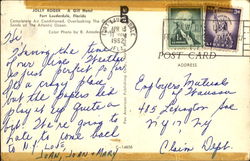 JOLLY ROGER A Gilt Hotel
Fort Lauderdale, Florida
Completely Air Conditioned, Overlooking The
Sands of the Atlantic Ocean
Color Photo by B.
POST CARD
ADDRESS
1952
Hi
Having the time of
our lives. Weather
is just perfect so far
It's a crazy place
but the
play it up quite a
bit. We're going to
hate to come back
to N.Y. Love,
Joan, Joan + Mary
Employers Mutuals
of Wausau
485 Lexington Ave
N.Y. 17, N.Y
Claim Dept.